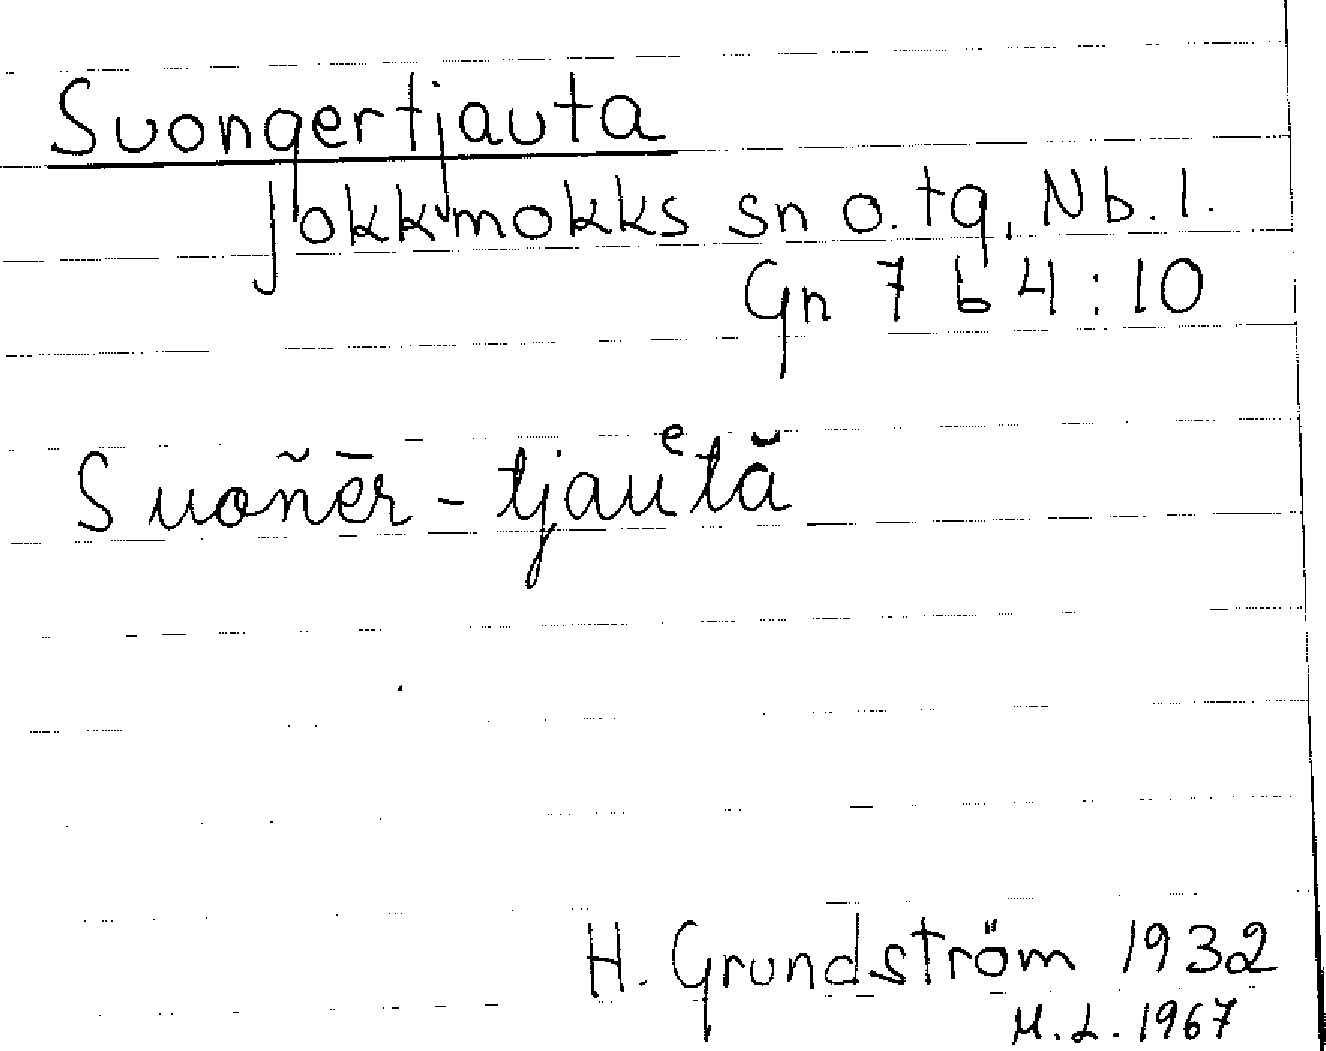 Suongertjauta
Jokkmokks sn o. tg, Nb. l.
Gn 7 b 4:10
Suoñēr - tjauᵉtă
H. Grundström 1932
M. L. 1967